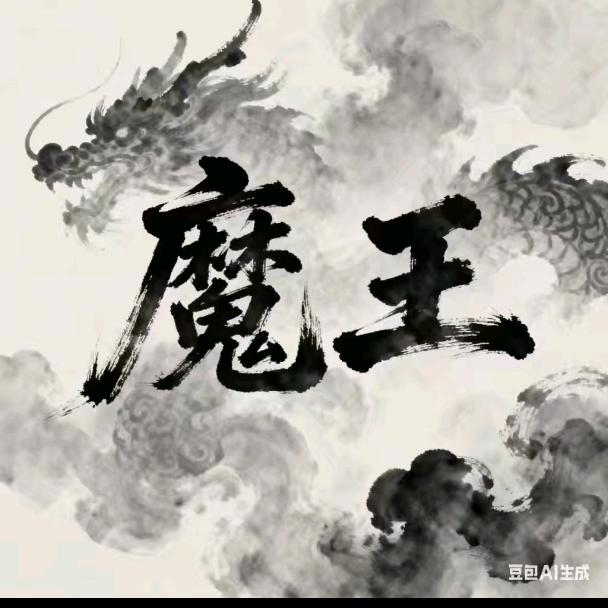 魔王
豆包AI生成